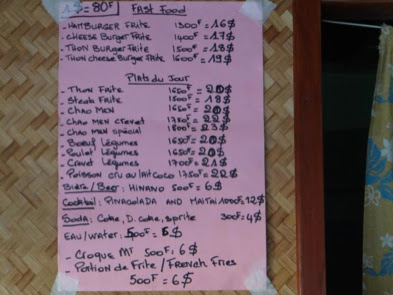 1$ = 80F Fast Food
- Hamburger Frite 1300F = 16$
- Cheese Burger Frite 1400F = 17$
- Thon Burger Frite 1500F = 18$
- Thon cheese Burger Frite 1600F = 19$
Plats du Jour
- Thon Frite 1650F = 20$
- Steak Frite 1500F = 18$
- Chao Men 1650F = 20$
- Chao Men crevet 1750F = 22$
- Chao Men spécial 1800F = 23$
- Boeuf Légumes 1650F = 20$
- Poulet Légumes 1650F = 20$
- Crevet Légumes 1700F = 21$
- Poisson cru au lait coco 1750F = 22$
Bière/Beer: Hinano 500F = 6$
Cocktail: Pinacolada and Maitai 1000F = 12$
Soda: Coke, D. coke, sprite 300F = 4$
Eau/Water: 500F = 6$
- Croque Mr 500F = 6$
- Portion de Frite / French Fries
500F = 6$